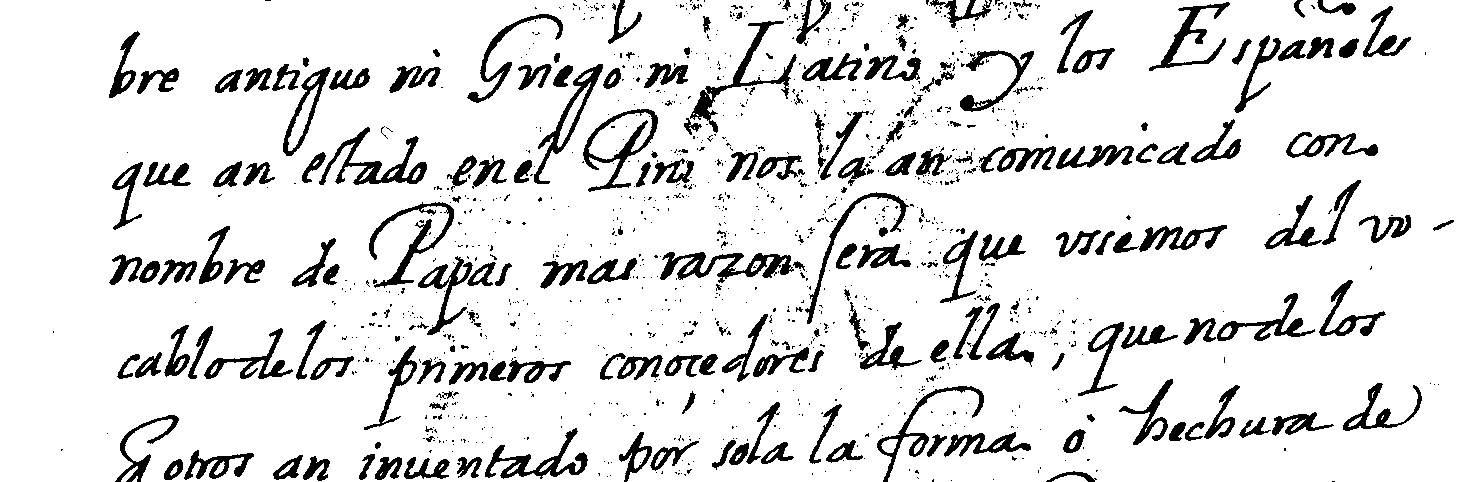 bre antiguo ni Griego ni Latino y los Españoles
que an estado en el Piru nos la an comunicado con
nombre de Papas mas razon sera que usiemos del vo-
cablo de los primeros conocedores de ella, que no de los
q otros an inventado por sola la forma o hechura de